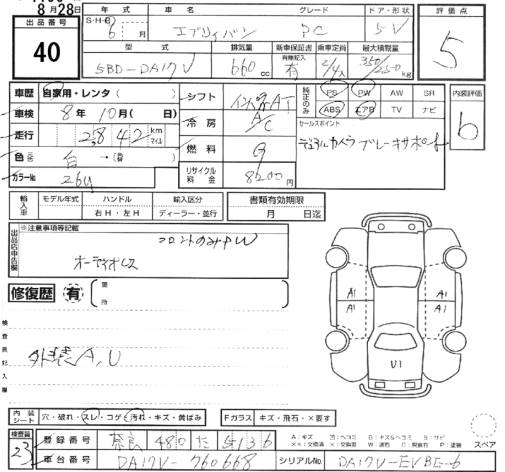 8月28日
出品番号
40
年式 車名 グレード ドア・形状
S・H・R
6月 エブリイバン PC 5V
型式 排気量 新車保証書 乗車定員 最大積載量
有無記入
5BD-DA17V 660cc 有 2/4人 350/250kg
評価点
5
車歴 自家用・レンタ( )
車検 8年10月(日)
走行 2842km マイル
色 白→(替)
カラーNo. 26U
シフト インパネAT
冷房 A/C
燃料 G
リサイクル料金 8200円
純正のみ
PS PW AW SR
ABS エアB TV ナビ
セールスポイント
デュアルカメラブレーキサポート
内装評価
b
輸入車
モデル年式 ハンドル 輸入区分
右H・左H ディーラー・並行
書類有効期限
月 日迄
出品店申告欄
※注意事項等記載
フロントのみPW
オーディオレス
修復歴 有
箇所
検査員記入欄
外装A,U
A1 A1
A1 A1
U1
内装シート 穴・破れ・スレ・コゲ・汚れ・キズ・黄ばみ
Fガラス キズ・飛石・×要す
検査員
23
登録番号 奈良 480 た 5136
車台番号 DA17V-760668
シリアルNo. DA17V-EVBE-6
A:キズ U:ヘコミ B:キズ&ヘコミ S:サビ
××:交換済 ×:交換要 W:波有 C:腐食 P:塗装
スペア